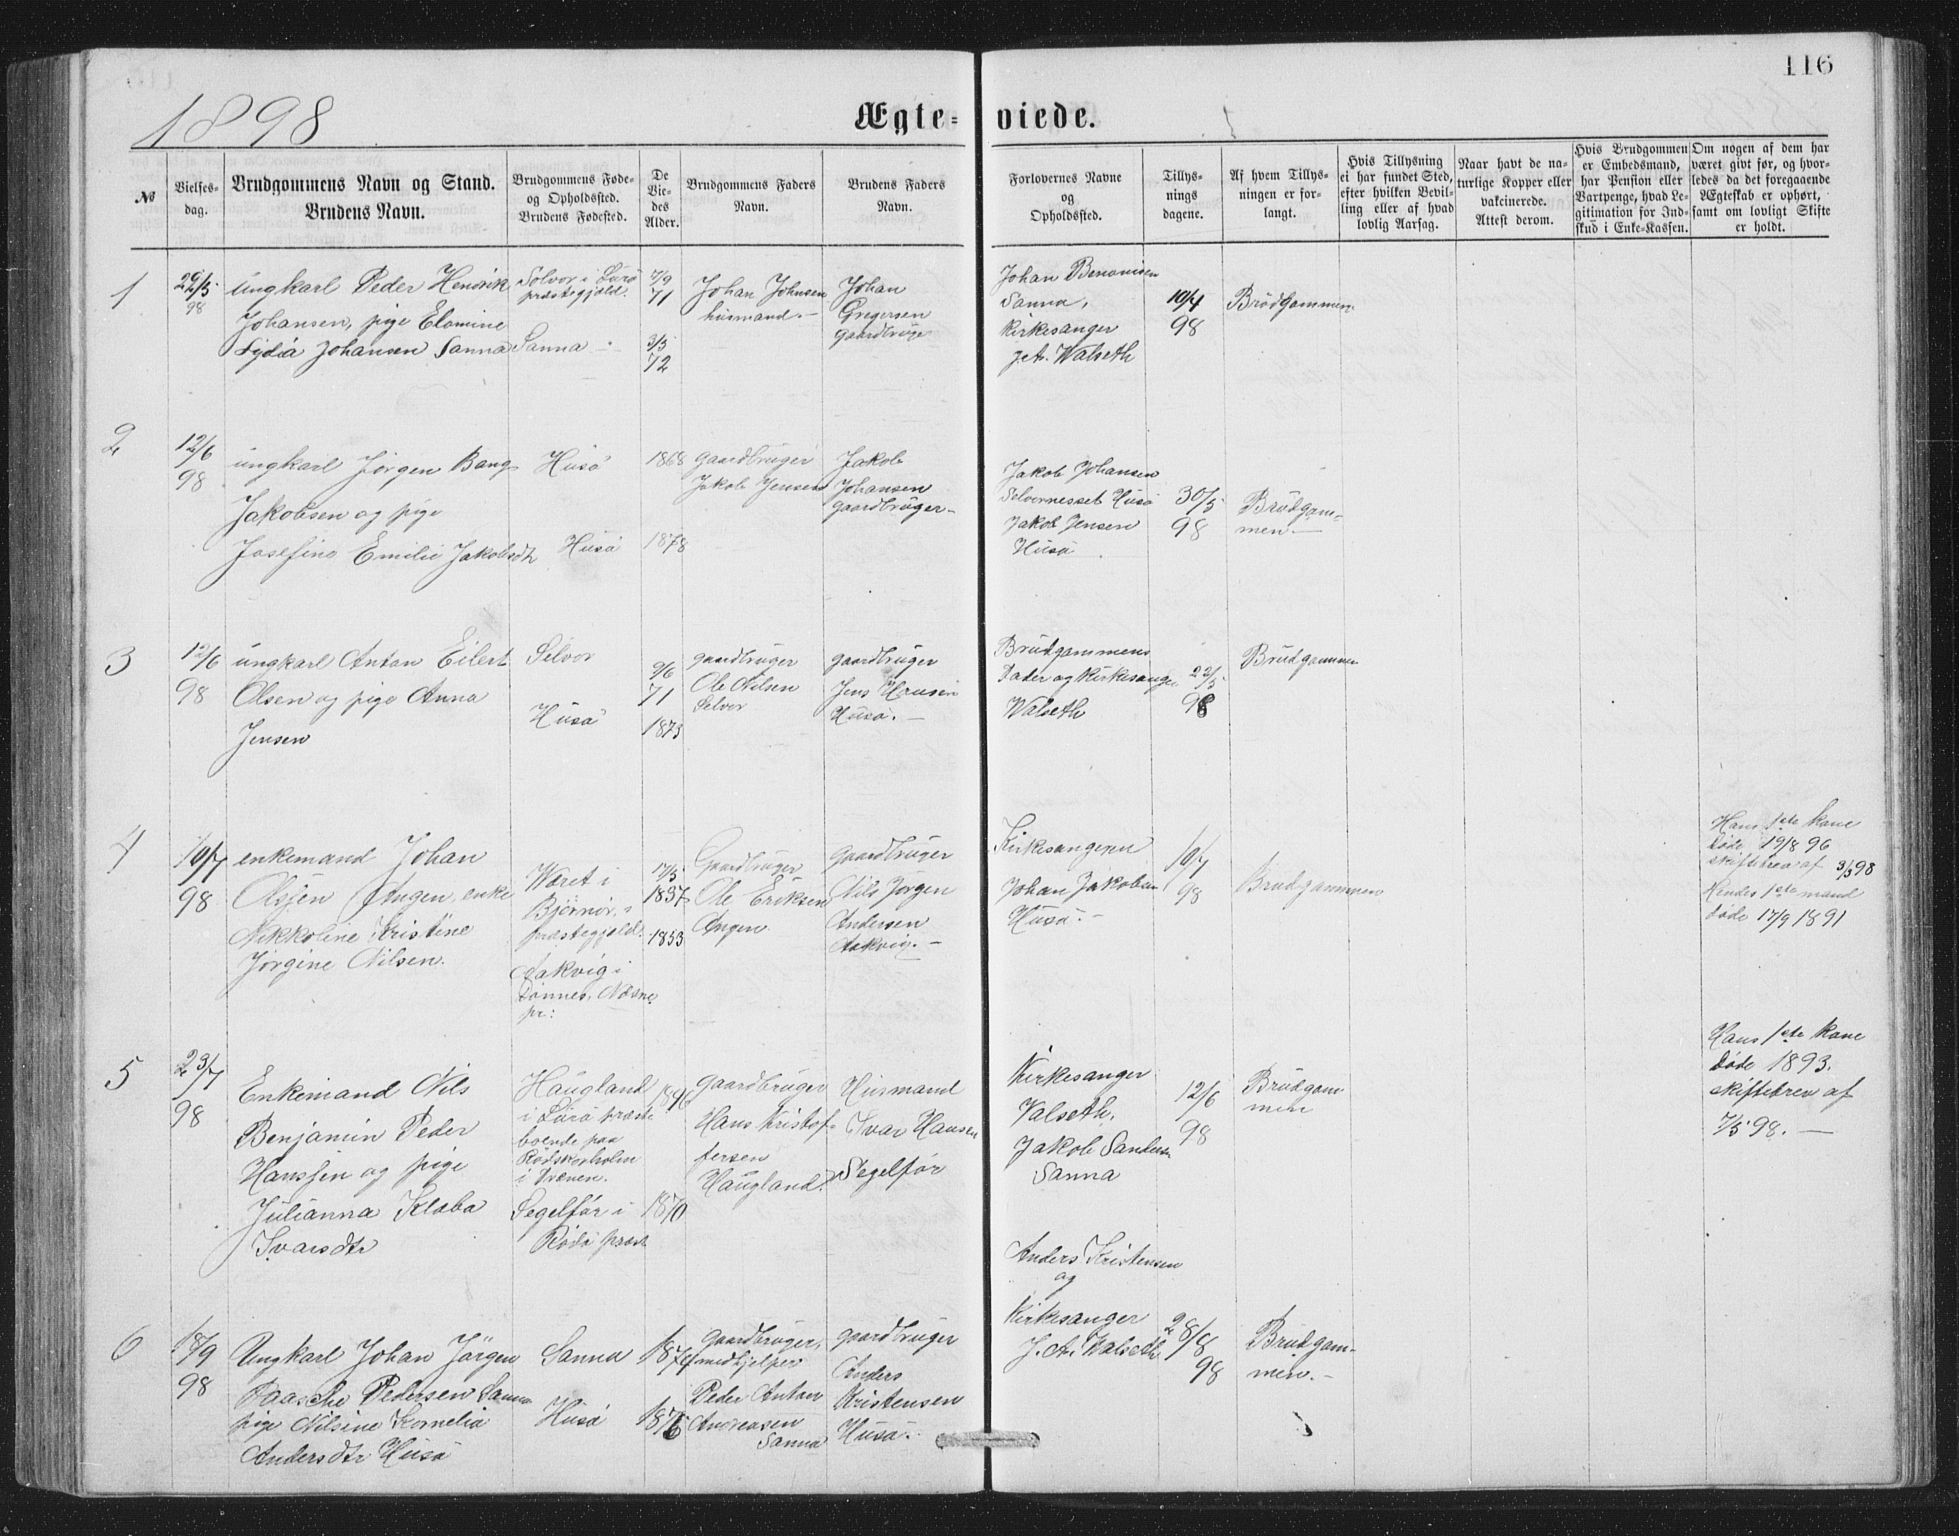 116
1898
Ægte- viede.
№
Vielses-
dag.
Brudgommens Navn og Stand.
Brudens Navn.
Brudgommens Føde-
og Opholdssted.
Brudens Fødested.
De
Vie-
des
Alder.
Brudgommens Faders
Navn.
Brudens Faders
Navn.
Forlovernes Navne
og
Opholdssted.
Tillys-
nings
dagene.
Af hvem Tillys-
ningen er for-
langt.
Hvis Tillysning
ei har fundet Sted,
efter hvilken Bevil-
ling eller af hvad
lovlig Aarsag.
Naar havt de na-
turlige Kopper eller
vakcinerede.
Attest derom.
Hvis Brudgommen
er Embedsmand,
har Pension eller
Vartpenge, hvad Le-
gitimation for Ind-
skud i Enke-Kassen.
Om nogen af dem har
været givt før, og hvor-
ledes da det foregaaende
Ægteskab er ophørt,
samt om lovligt Skifte
er holdt.
1
29/5
98
ungkarl Peder Henrik
Johansen, pige Elomine
Lydia Johansen Sanna
Selvor i Lurö
præstegjeld.
Sanna -
7/9
71
3/3
72
Johan Johnsen
husmand. -
Johan
Gregersen
gaardbruge
Johan Benonisen
Sanna,
kirkesanger
J. A. Walseth
10/4
98
Brudgammen
2
12/6
98
ungkarl Jörgen Bang
Jakobsen og pige
Josefine Emilie Jakobsdtr
Husö
Husö
1868
1878
gaardbruger
Jakob Jensen
Jakob
Johansen
gaardbruger -
Jakob Johansen
Selvornesset Husö
Jakob Jensen
Husö
30/5
98
Brudgam-
men. -
3
12/6
98
ungkarl Anton Eilert
Olsen og pige Anna
Jensen
Selvor
Husö
9/6
71
1873
gaardbruger
Ole Nilsen
Selvor
gaardbruger
Jens Hansen
Husö. -
Brudgammens
Fader og Kirkesanger
Walseth
22/5
98
Brudgammen
4
10/7
98
enkemand Johan
Olsen Angen, enke
Nikkoline Kristine
Jörgine Nilsen.
Været i
Björnör
præstegjeld.
Aakvig i
Dönnes, Næsne
pr:
17/5
1837
1853
Gaardbruger
Ole Eriksen
Angen
gaardbruger
Nils Jörgen
Andersen
Aakvig. -
Kirkesangeren
Johan Jakobsen
Husö. -
10/7
98
Brudgammen
Hans 1ste kone
döde 19/8 96
skiftebrev af 3/5 98
Hendes 1ste mand
döde 17/9 1891
5
23/7
98
Enkemand Nils
Benjamin Peder
Hanssen og pige
Julianna Klæba
Ivarsdtr
Haugland
i Lurö præst
boende paa
Rödskjærholm
i Trænen.
Segelför i
Rödö præst
1870
gaardbruger
Hans Kristof-
fersen
Haugland.
Husmand
Ivar Hansen
Segelför
Kirkesanger
Valseth,
Jakob Sandersen
Sanna
12/6
98
Brudgam
men
Hans 1ste kone
döde 1893.
skiftebrev af
7/5 98. -
6
18/9
98
Ungkarl Johan Jörgen
Paasche Pedersen Sanna
pige Nilsine Kornelia
Andersdtr Husö
Sanna
Husö
1876
gaardbruger,
medhjelper
Peder Antan
Andreasen
Sanna
gaardbruger
Anders
Kristensen
Husö. -
Anders Kristensen
og
Kirkesanger
J. A. Walseth
28/8
98
Brudgam-
men. -